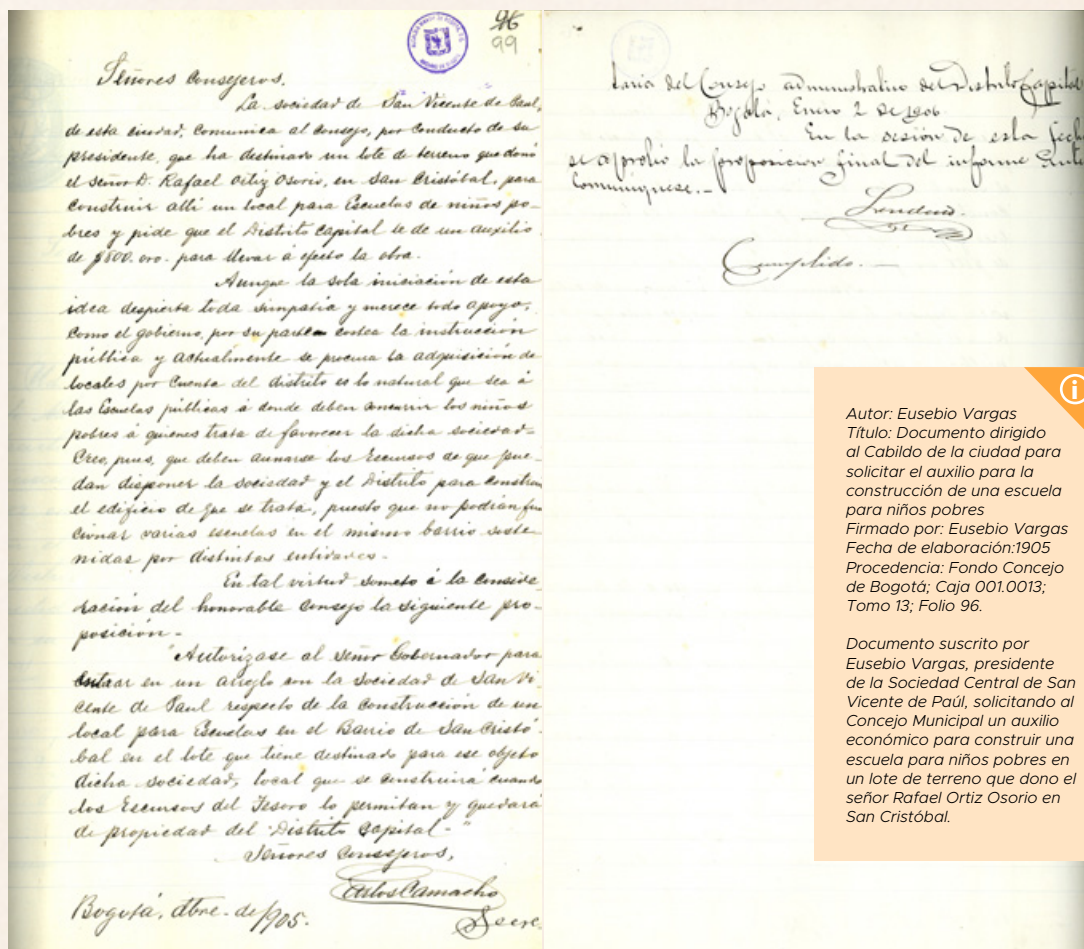 96
99
Señores Consejeros.
La sociedad de San Vicente de Paul,
de esta ciudad, comunica al Consejo, por conducto de su
presidente, que ha destinado un lote de terreno que donó
el señor D. Rafael Ortiz Osorio, en San Cristóbal, para
construir allí un local para Escuelas de niños po-
bres y pide que el Distrito Capital le de un auxilio
de $800. oro- para llevar á efecto la obra.
Aunque la sola iniciación de esta
idea despierta toda simpatía y merece todo apoyo,
como el gobierno, por su parte costea la instrucción
pública y actualmente se procura la adquisición de
locales por cuenta del distrito es lo natural que sea á
las Escuelas públicas á donde deben concurrir los niños
pobres á quienes trata de favorecer la dicha sociedad-
Creo, pues, que deben aunarse los Recursos de que pue-
dan disponer la sociedad y el Distrito para construir
el edificio de que se trata, puesto que no podrían fun
cionar varias escuelas en el mismo barrio soste-
nidas por distintas entidades.-
En tal virtud someto á la conside
ración del honorable Consejo la siguiente pro-
posición-
"Autorízase al señor Gobernador para
entrar en un arreglo con la Sociedad de San Vi-
cente de Paul respecto de la construcción de un
local para Escuelas en el Barrio de San Cristó-
bal en el lote que tiene destinado para ese objeto
dicha sociedad, local que se construirá cuando
los Recursos del Tesoro lo permitan y quedará
de propiedad del Distrito Capital-"
Señores Consejeros,
Carlos Camacho
Bogotá, dbre- de 1905.
taria del Consejo administrativo del Distrito Capital
Bogotá, Enero 2 de 1906.
En la sesión de esta fecha
se aprobó la proposicion final del informe ante
Comuníquese.-
Londoño.
Cumplido.-
Autor: Eusebio Vargas
Título: Documento dirigido
al Cabildo de la ciudad para
solicitar el auxilio para la
construcción de una escuela
para niños pobres
Firmado por: Eusebio Vargas
Fecha de elaboración:1905
Procedencia: Fondo Concejo
de Bogotá; Caja 001.0013;
Tomo 13; Folio 96.
Documento suscrito por
Eusebio Vargas, presidente
de la Sociedad Central de San
Vicente de Paúl, solicitando al
Concejo Municipal un auxilio
económico para construir una
escuela para niños pobres en
un lote de terreno que dono el
señor Rafael Ortiz Osorio en
San Cristóbal.